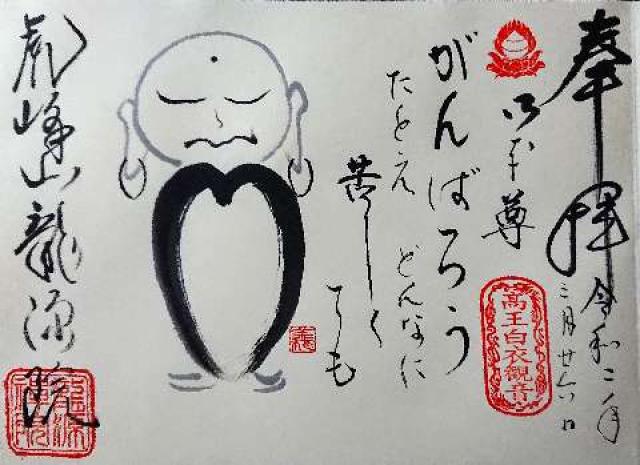 奉拝
令和二年
三月廿六日
御本尊
高王白衣観音
がんばろう
たとえ どんなに
苦しくても
虎峰山龍源院
龍源禅院